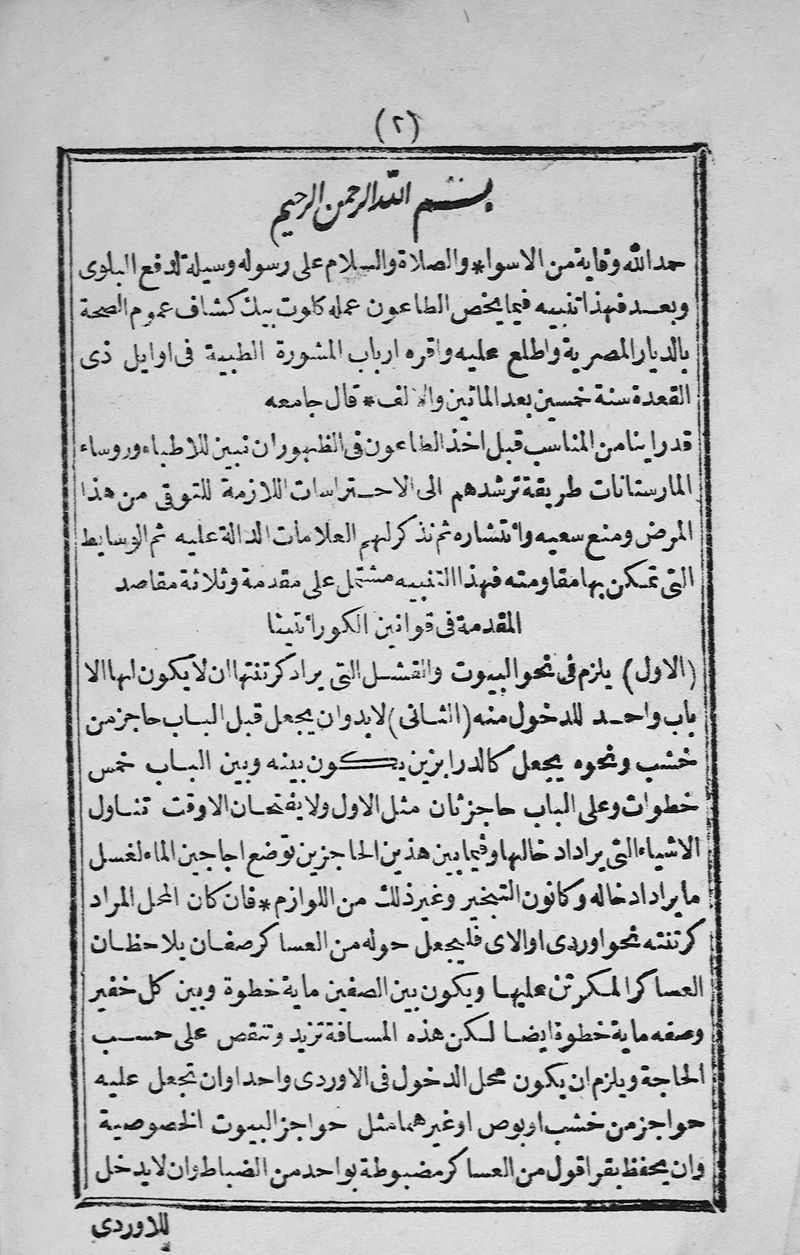 (٢)
بسم الله الرحمن الرحيم
حمد الله وقاية من الاسواء * والصلاة والسلام على رسوله وسيلة لدفع البلوى
وبعد فهذا تنبيه فيما يخص الطاعون عمله كلوت بيك كشاف عموم الصحة
بالديار المصرية واطلع عليه واقره ارباب المشورة الطبية فى اوايل ذى
القعدة سنة خمسين بعد المائتين والالف * قال جامعه
قد راينا من المناسب قبل اخذ الطاعون فى الظهور ان نبين للاطباء وروساء
المارستانات طريقة ترشدهم الى الاحتراسات اللازمة للتوقى من هذا
المرض ومنع سعيه وانتشاره ثم نذكر لهم العلامات الدالة عليه ثم الوسايط
التى تمكن بها مقاومته فهذا التنبيه مشتمل على مقدمة وثلاثة مقاصد
المقدمة فى قوانين الكورانتينا
(الاول) يلزم فى نحو البيوت والقشل التى يراد كرتنتها ان لا يكون لها الا
باب واحد للدخول منه (الثانى) لابد وان يجعل قبل الباب حاجز من
خشب ونحوه يجعل كالدرابزين يكون بينه وبين الباب خمس
خطوات وعلى الباب حاجز ثان مثل الاول ولا يفتحان الا وقت تناول
الاشياء التى يراد ادخالها وفيما بين هذين الحاجزين توضع اجاجين الماء لغسل
ما يراد ادخاله وكانون التبخير وغير ذلك من اللوازم * فان كان المحل المراد
كرتنته نحو اوردى او الاى فليجعل حوله من العساكر صفان يلاحظان
العساكر المكرتن عليها ويكون بين الصفين ماية خطوة وبين كل خفير
وصفه ماية خطوة ايضا لكن هذه المسافة تزيد وتنقص على حسب
الحاجة ويلزم ان يكون محل الدخول فى الاوردى واحدا وان تجعل عليه
حواجز من خشب او بوص او غيرهما مثل حواجز البيوت الخصوصية
وان يحفظ بقراقول من العساكر مضبوطة بواحد من الضباط وان لا يدخل
للاوردى